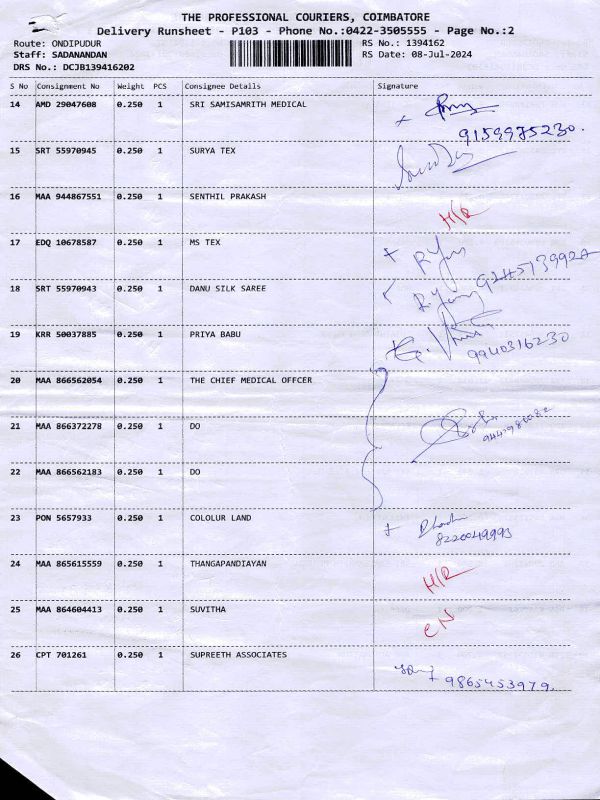 THE PROFESSIONAL COURIERS, COIMBATORE
Delivery Runsheet - P103 - Phone No.:0422-3505555 - Page No.:2
Route: ONDIPUDUR RS No.: 1394162
Staff: SADANANDAN RS Date: 08-Jul-2024
DRS No.: DCJB139416202
S No Consignment No Weight PCS Consignee Details Signature
14 AMD 29047608 0.250 1 SRI SAMISAMRITH MEDICAL
9159975230.
15 SRT 55970945 0.250 1 SURYA TEX
16 MAA 944867551 0.250 1 SENTHIL PRAKASH
H/R
17 EDQ 10678587 0.250 1 MS TEX
18 SRT 55970943 0.250 1 DANU SILK SAREE
19 KRR 50037885 0.250 1 PRIYA BABU
9940316230
20 MAA 866562054 0.250 1 THE CHIEF MEDICAL OFFCER
21 MAA 866372278 0.250 1 DO
22 MAA 866562183 0.250 1 DO
23 PON 5657933 0.250 1 COLOLUR LAND
8220049993
24 MAA 865615559 0.250 1 THANGAPANDIAYAN
H/R
25 MAA 864604413 0.250 1 SUVITHA
CN
26 CPT 701261 0.250 1 SUPREETH ASSOCIATES
9865453979.